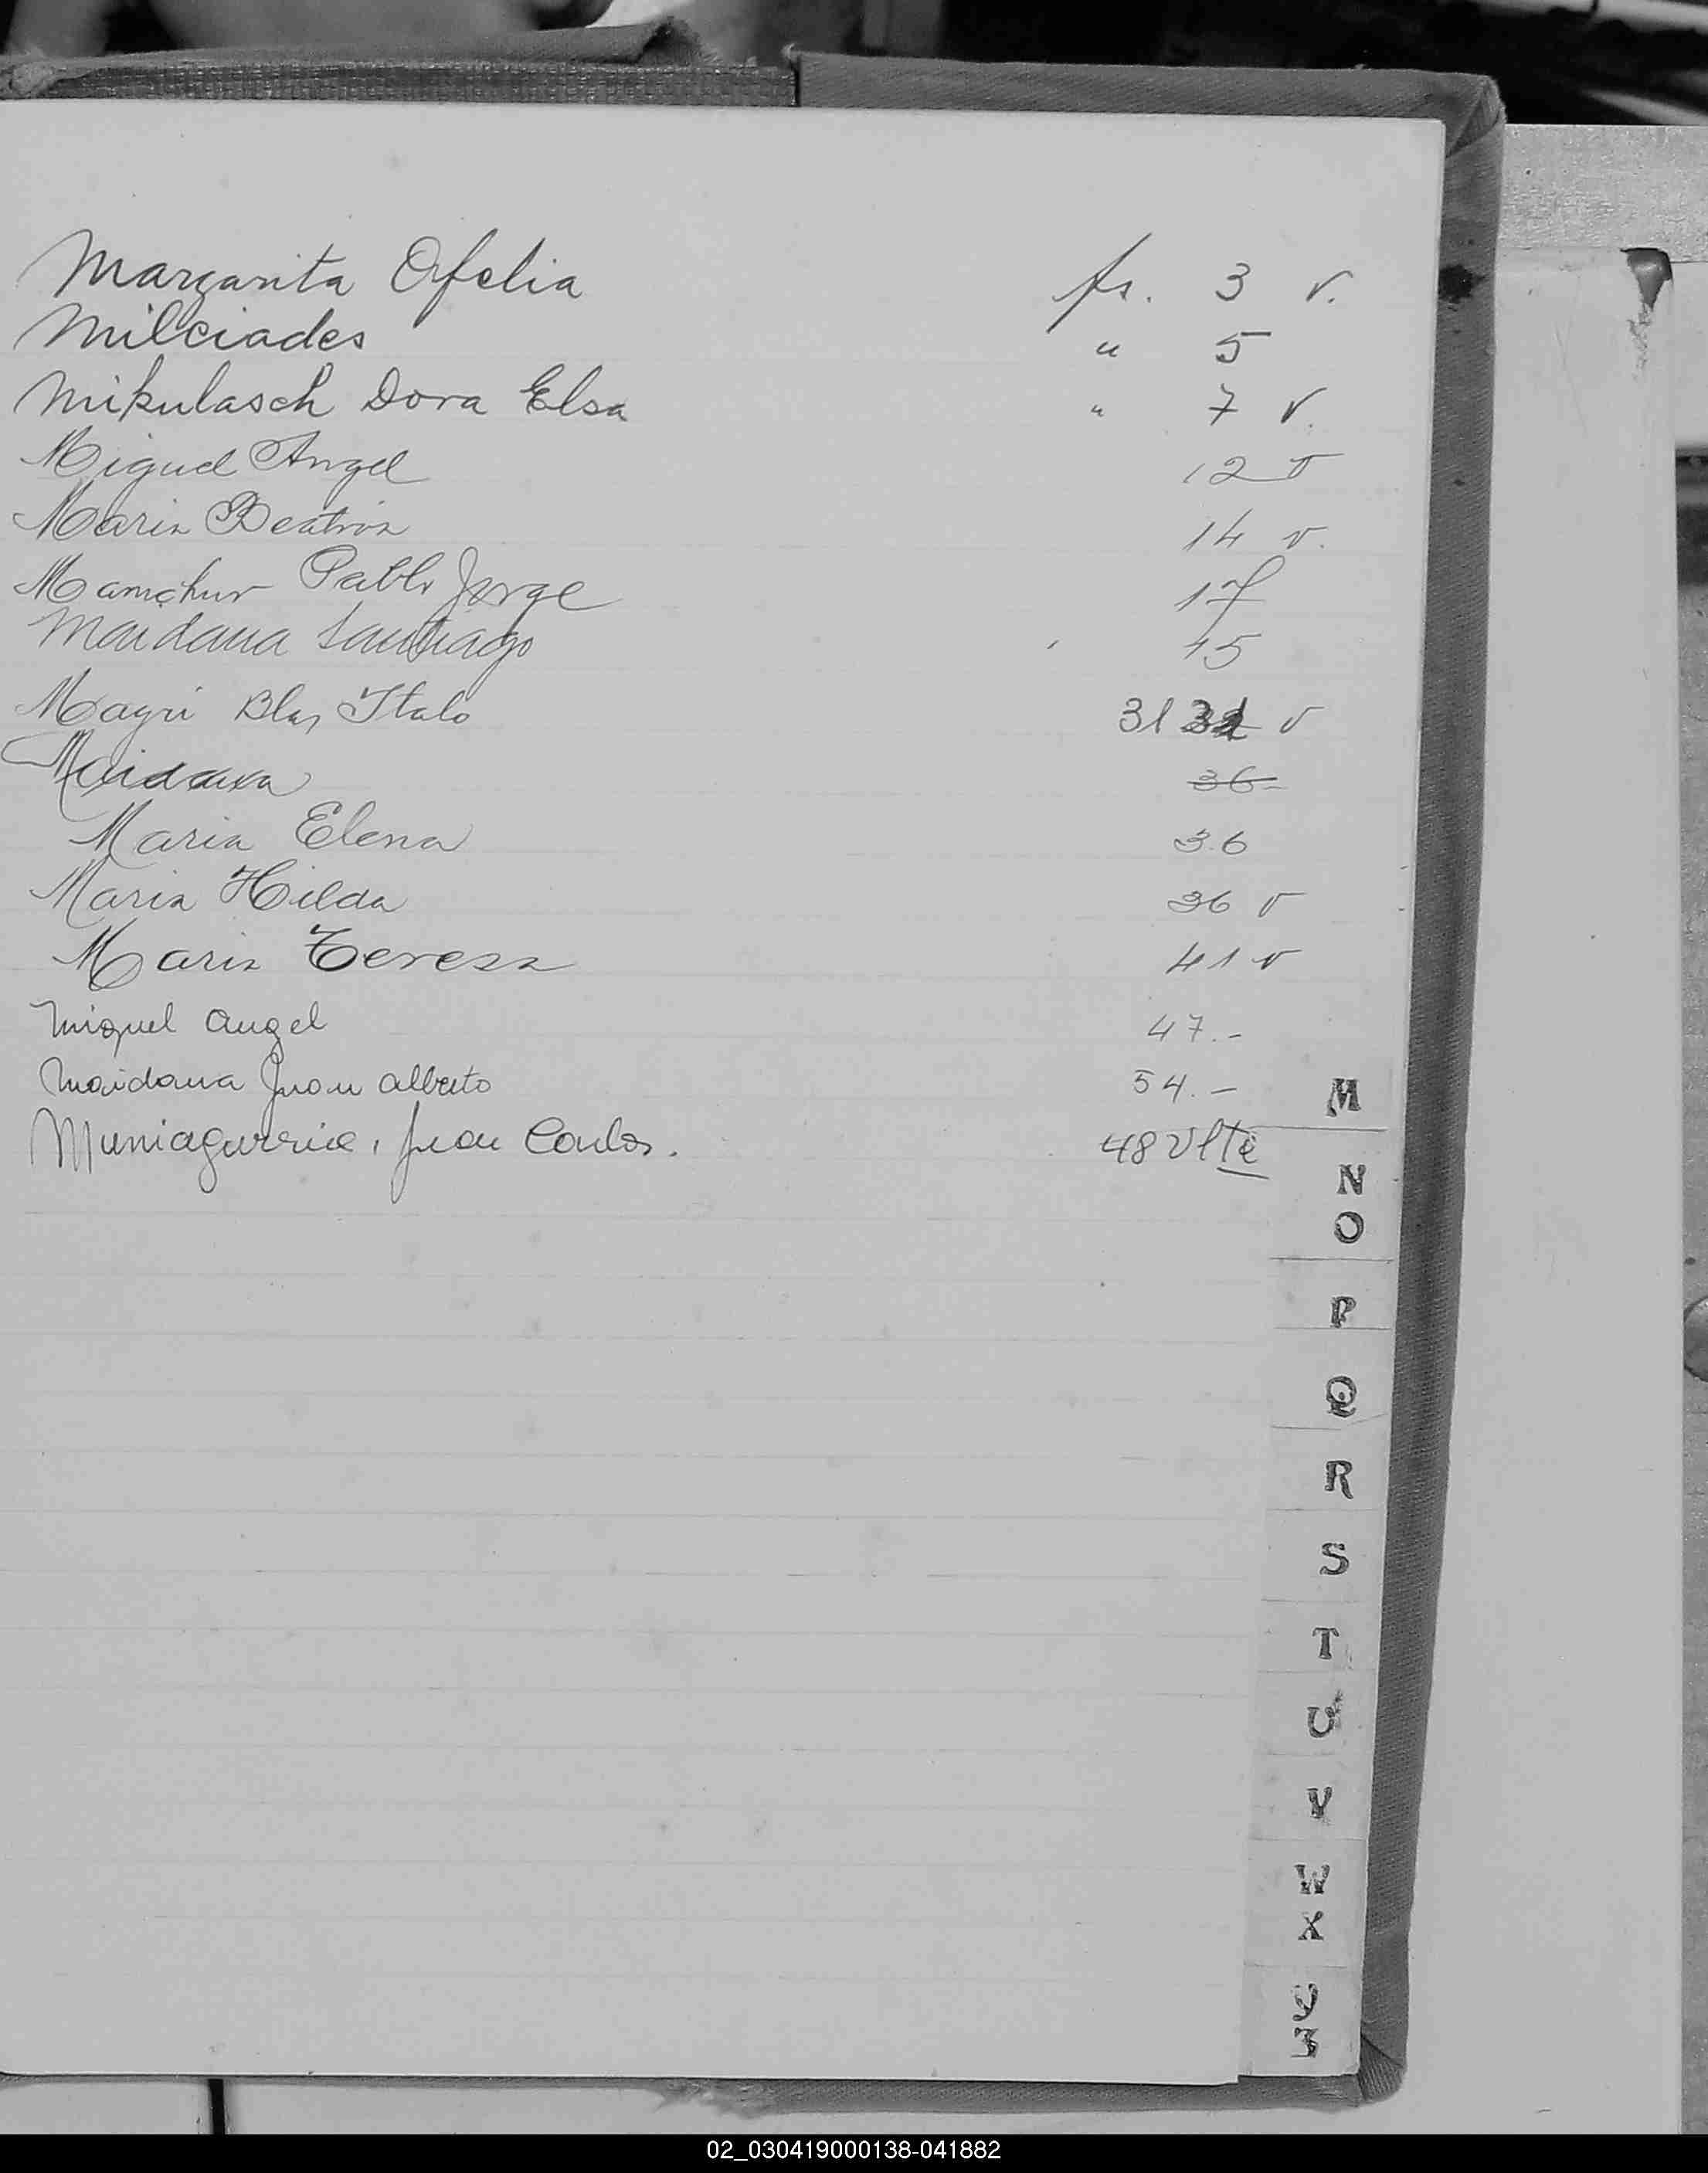 Margarita Ofelia fs. 3 v.
Milciades " 5
Mikulasch Dora Elsa " 7 v.
Miguel Angel 12 v
Maria Beatriz 14 v.
Mamchur Pablo Jorge 17
Maidana Santiago 15
Magri Blas Italo 31 v
Maidana 36
Maria Elena 36
Maria Hilda 36 v
Maria Teresa 41 v
Miguel Angel 47.-
Maidana Juan Alberto 54.-
Muniagurria, Juan Carlos. 48 vlta
M
N
O
P
Q
R
S
T
U
V
W
X
Y
Z
02_030419000138-041882